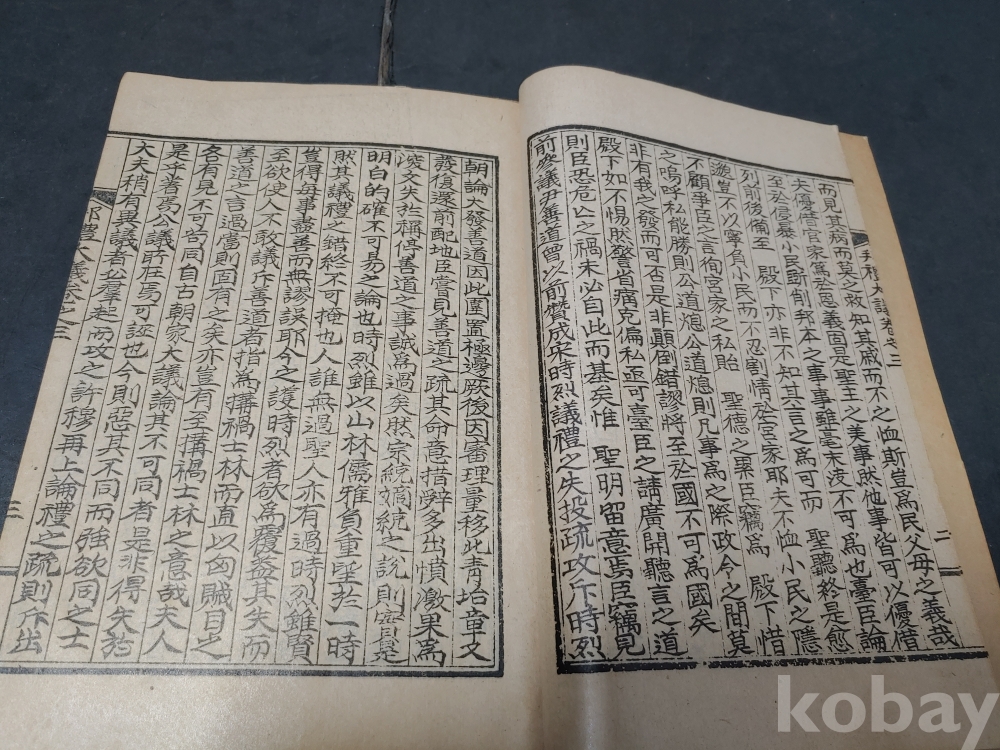 而見其病而莫之救知其戚而不之恤斯豈爲民父母之義哉
夫優借官家寃於恩義固是聖主之美事然他事皆可以優借
至於侵暴小民斷削邦本之事事雖毫末決不可爲也臺臣論
列前後備至 殿下亦非不知其言之爲可而 聖聽終是愈
邈豈不以寧負小民而不忍割情於宮家耶夫不恤小民之隱
不顧爭臣之言徇宮家之私貽 聖德之累臣竊爲 殿下惜
之嗚呼私能勝則公道熄公道熄則凡事爲之際政令之間莫
非有我之發而可否是非顚倒錯謬將至於國不可爲國矣
殿下如不惕然警省痛克偏私亟可臺臣之請廣開聽言之道
則臣恐危亡之禍未必自此而基矣惟 聖明留意焉臣竊見
前參議尹善道曾以前贊成宋時烈議禮之失投疏攻斥時烈
二
朝論大發善道因此圍置極邊厥後因審理量移此靑坮章又
發復還前配地臣嘗見善道之疏其命意措辭多出憤激果爲
深文失於稱停善道之事誠爲過矣然宗統嫡統之說則實是
明白的確不可易之論也時烈雖以山林儒雅負重望於一時
然其議禮之錯終不可掩也人誰無過聖人亦有過時烈雖賢
豈得每事盡善而無謬誤耶今之護時烈者欲爲覆盖其失而
至欲使人不敢議斥善道者指爲搆禍士林而直以凶賊目之
善道之言過當則固有之矣亦豈有至搆禍士林之意哉夫人
各有見不可苟同自古朝家大議論其不可同者是非得失於
是乎著焉公議所在焉可誣也今則惡其不同而強欲同之士
大夫稍有異議者必羣起而攻之許穆再上論禮之疏則斥出
邦禮大議卷之二
三
kobay